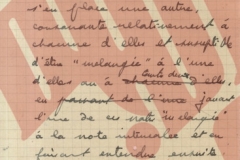 en place une autre,
consonante relativement à
chacune d'elles et susceptible
d'être "mélangée" à l'une
d'elles ou à chacune d'elles,
toutes deux
en passant de l'une jouant
l'une de ces notes "mélangée"
à la note intercalée et en
faisant entendre ensuite